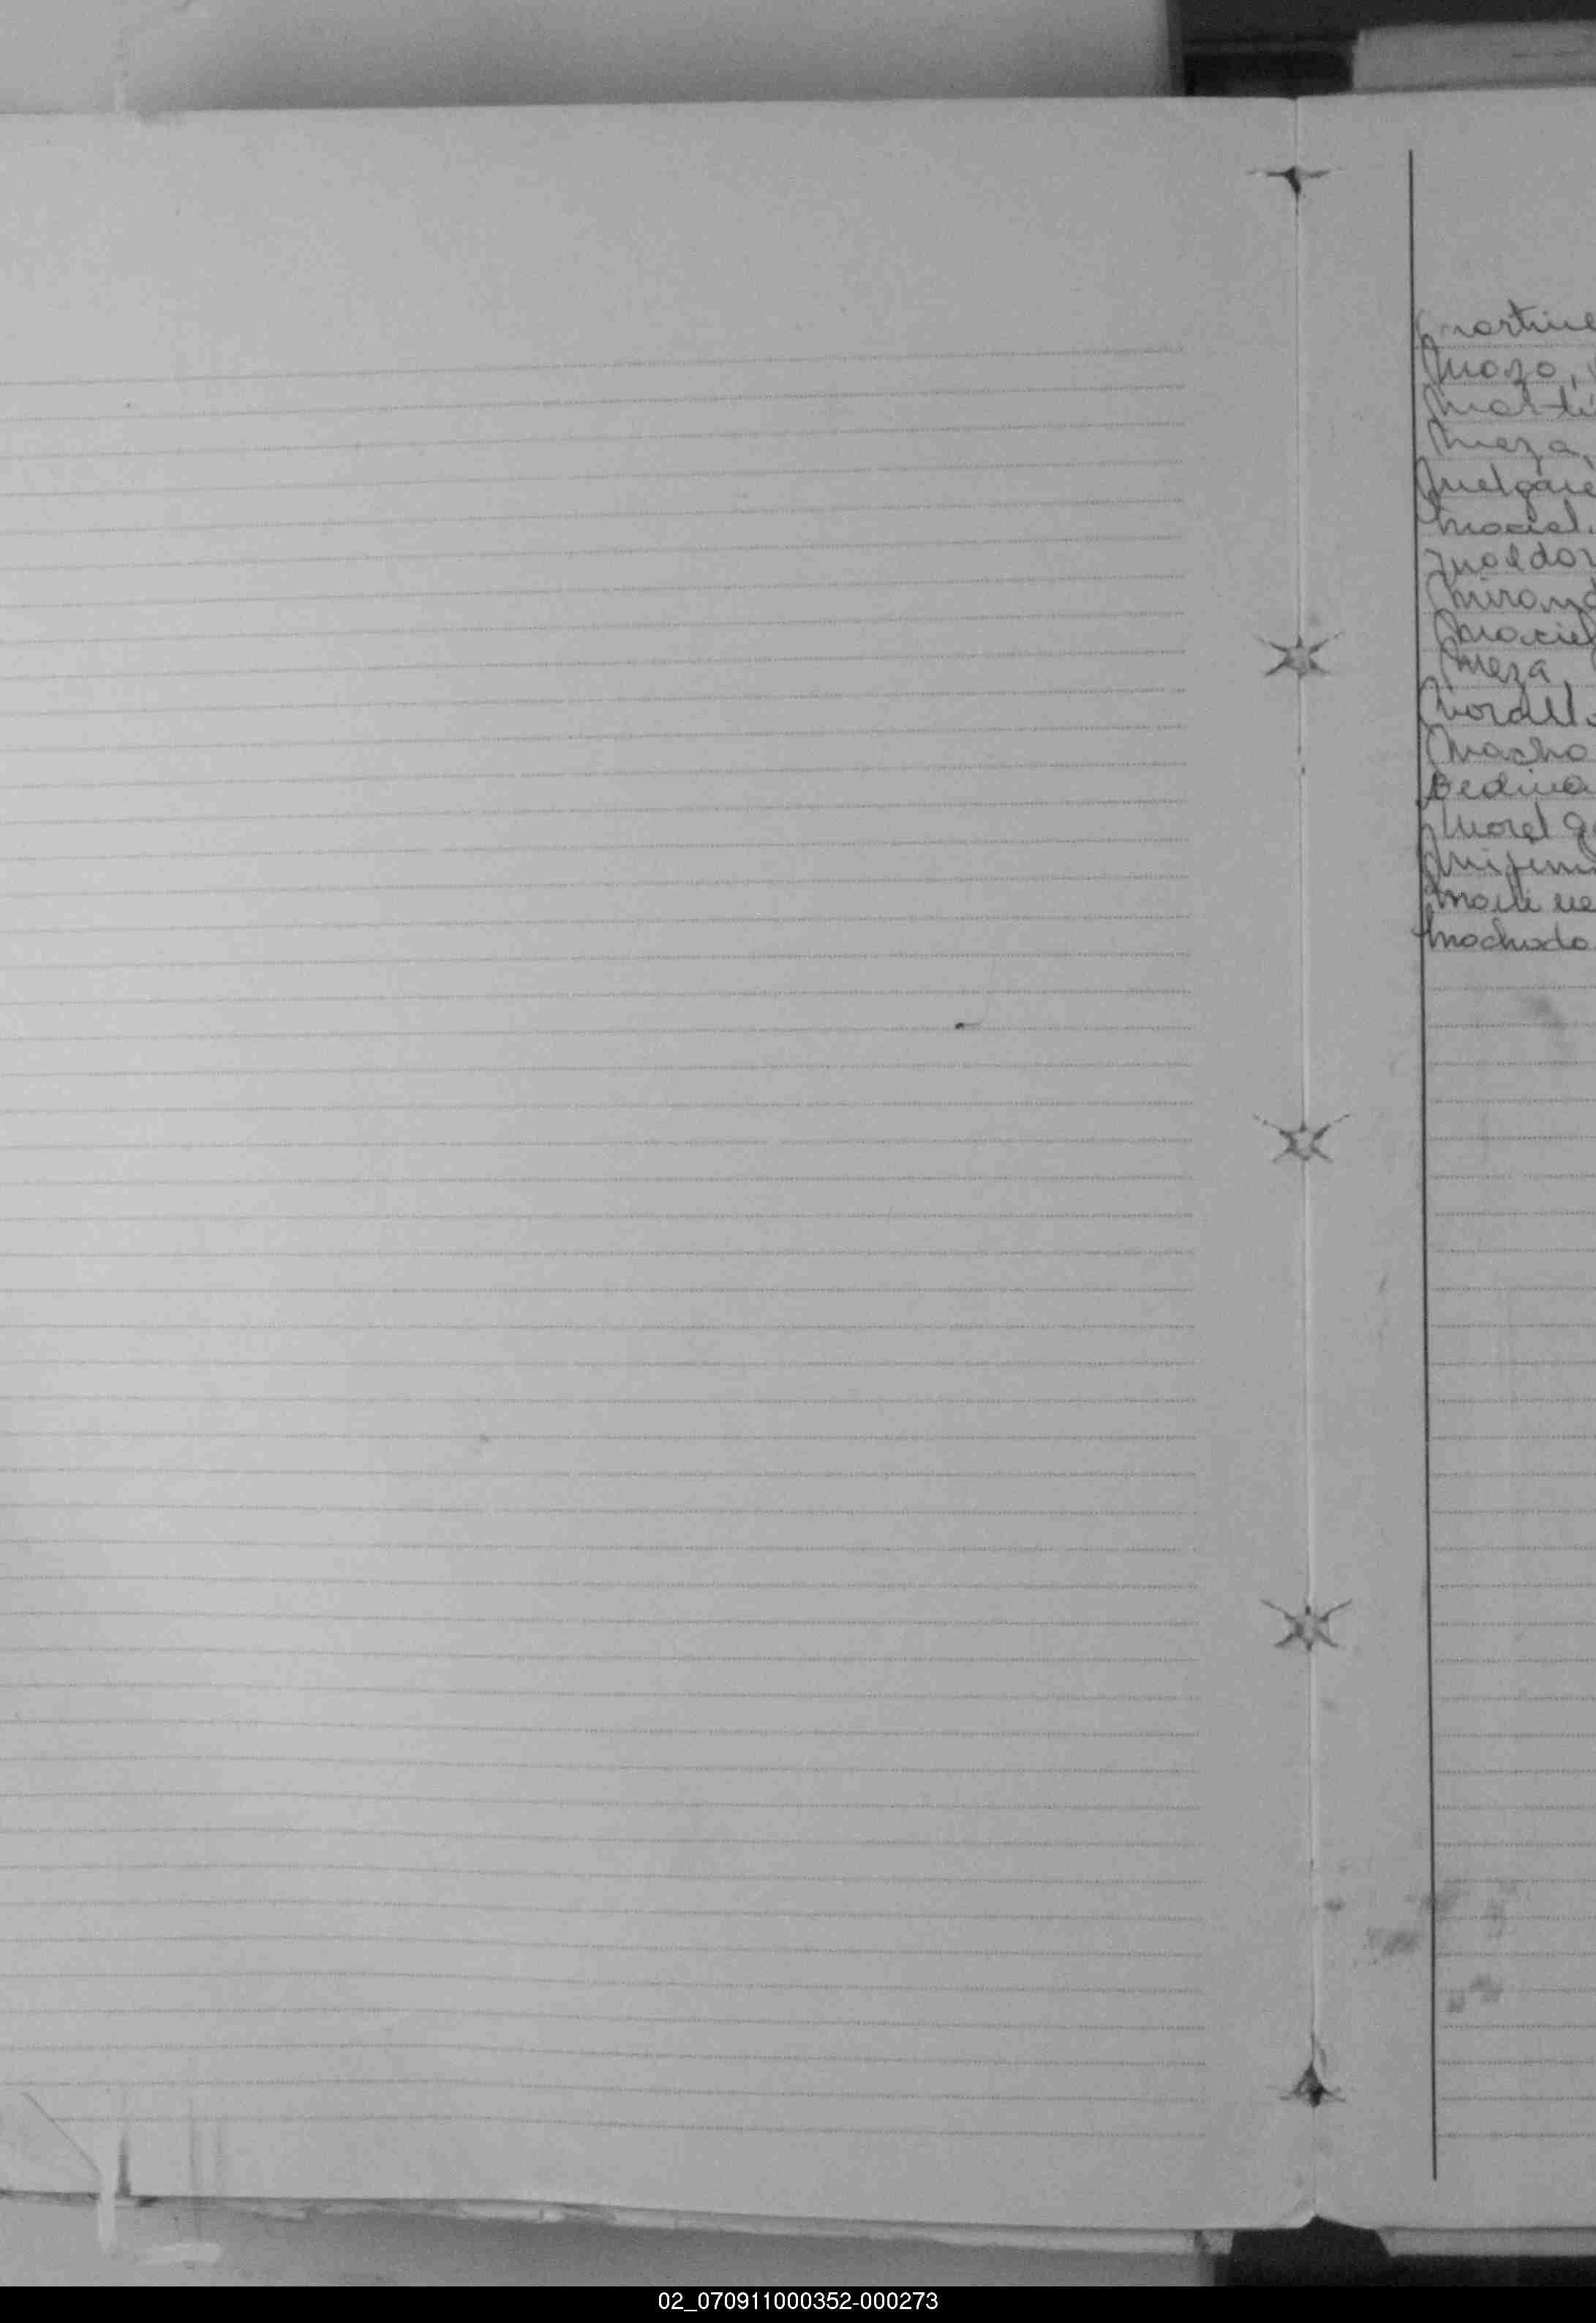 Martine
Mozo,
Marti
Meza,
Melgare
Maciel.
Maldon
Mirand
Maciel
Meza
Morell
Macho
Medina
Morel G
Mi
Machado
02_070911000352-000273